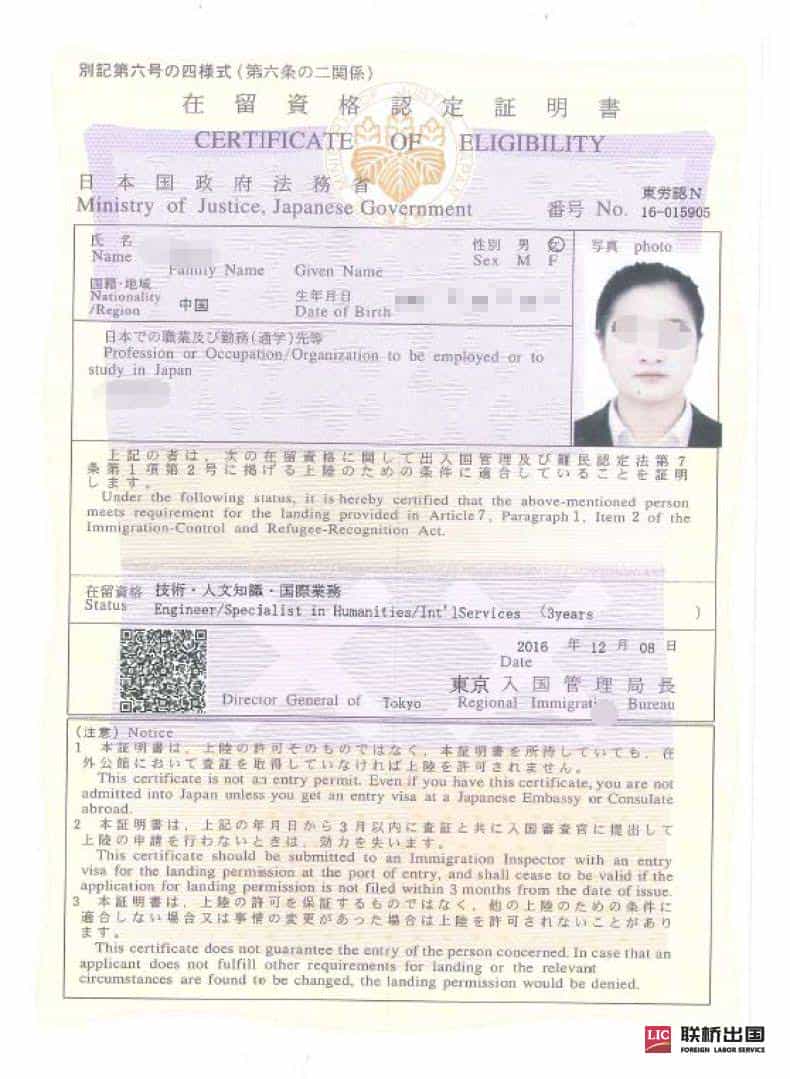 別記第六号の四様式(第六条の二関係)
在留資格認定証明書
CERTIFICATE OF ELIGIBILITY
日本国政府法務省
Ministry of Justice, Japanese Government
東労認N
番号 No. 16-015905
氏名
Name
Family Name Given Name
性別 男 女
Sex M F
写真 photo
国籍・地域
Nationality
/Region
中国
生年月日
Date of Birth
日本での職業及び勤務(通学)先等
Profession or Occupation/Organization to be employed or to
study in Japan
上記の者は、次の在留資格に関して出入国管理及び難民認定法第7
条第1項第2号に掲げる上陸のための条件に適合していることを証明
します。
Under the following status, it is hereby certified that the above-mentioned person
meets requirement for the landing provided in Article 7, Paragraph 1, Item 2 of the
Immigration-Control and Refugee-Recognition Act.
在留資格 技術・人文知識・国際業務
Status Engineer/Specialist in Humanities/Int'lServices (3years )
2016 年 12 月 08 日
Date
東京 入国管理局長
Director General of Tokyo Regional Immigrati Bureau
(注意) Notice
1 本証明書は、上陸の許可そのものではなく、本証明書を所持していても、在
外公館において査証を取得していなければ上陸を許可されません。
This certificate is not an entry permit. Even if you have this certificate, you are not
admitted into Japan unless you get an entry visa at a Japanese Embassy or Consulate
abroad.
2 本証明書は、上記の年月日から3月以内に査証と共に入国審査官に提出して
上陸の申請を行わないときは、効力を失います。
This certificate should be submitted to an Immigration Inspector with an entry
visa for the landing permission at the port of entry, and shall cease to be valid if the
application for landing permission is not filed within 3 months from the date of issue.
3 本証明書は、上陸の許可を保証するものではなく、他の上陸のための条件に
適合しない場合又は事情の変更があった場合は上陸を許可されないことがあり
ます。
This certificate does not guarantee the entry of the person concerned. In case that an
applicant does not fulfill other requirements for landing or the relevant
circumstances are found to be changed, the landing permission would be denied.
LIC 联桥出国
FOREIGN LABOR SERVICE